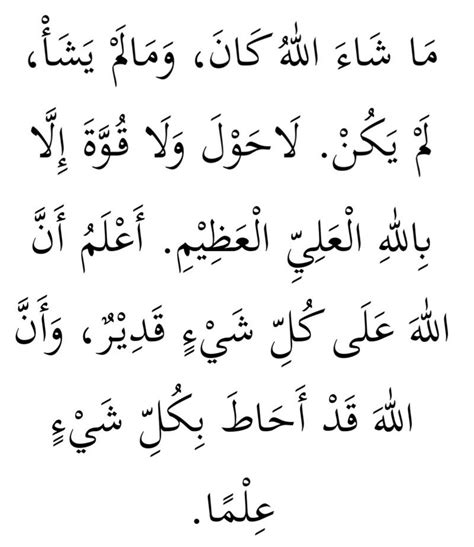 مَا شَاءَ اللّٰهُ كَانَ، وَمَالَمْ يَشَأْ،
لَمْ يَكُنْ. لَاحَوْلَ وَلَا قُوَّةَ إِلَّا
بِاللّٰهِ الْعَلِيِّ الْعَظِيْمِ. أَعْلَمُ أَنَّ
اللّٰهَ عَلَى كُلِّ شَيْءٍ قَدِيْرٌ، وَأَنَّ
اللّٰهَ قَدْ أَحَاطَ بِكُلِّ شَيْءٍ
عِلْمًا.